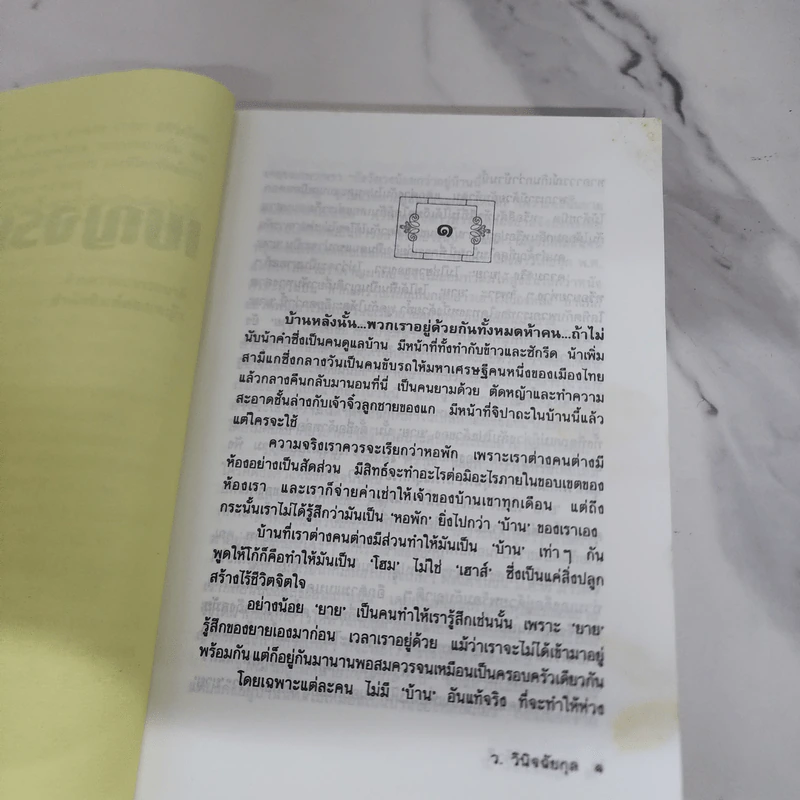 เบญจร
๑
บ้านหลังนั้น...พวกเราอยู่ด้วยกันทั้งหมดห้าคน...ถ้าไม่
นับน้าคำซึ่งเป็นคนดูแลบ้าน มีหน้าที่ทั้งทำกับข้าวและซักรีด น้าเพิ่ม
สามีแกซึ่งกลางวันเป็นคนขับรถให้มหาเศรษฐีคนหนึ่งของเมืองไทย
แล้วกลางคืนกลับมานอนที่นี่ เป็นคนยามด้วย ตัดหญ้าและทำความ
สะอาดชั้นล่างกับเจ้าจิ๋วลูกชายของแก มีหน้าที่จิปาถะในบ้านนี้แล้ว
แต่ใครจะใช้
ความจริงเราควรจะเรียกว่าหอพัก เพราะเราต่างคนต่างมี
ห้องอย่างเป็นสัดส่วน มีสิทธ์จะทำอะไรต่อมิอะไรภายในขอบเขตของ
ห้องเรา และเราก็จ่ายค่าเช่าให้เจ้าของบ้านเขาทุกเดือน แต่ถึง
กระนั้นเราไม่ได้รู้สึกว่ามันเป็น 'หอพัก' ยิ่งไปกว่า 'บ้าน' ของเราเอง
บ้านที่เราต่างคนต่างมีส่วนทำให้มันเป็น 'บ้าน' เท่าๆ กัน
พูดให้โก้ก็คือทำให้มันเป็น 'โฮม' ไม่ใช่ 'เฮาส์' ซึ่งเป็นแค่สิ่งปลูก
สร้างไร้ชีวิตจิตใจ
อย่างน้อย 'ยาย' เป็นคนทำให้เรารู้สึกเช่นนั้น เพราะ 'ยาย'
รู้สึกของยายเองมาก่อน เวลาเราอยู่ด้วย แม้ว่าเราจะไม่ได้เข้ามาอยู่
พร้อมกัน แต่ก็อยู่กันมานานพอสมควรจนเหมือนเป็นครอบครัวเดียวกัน
โดยเฉพาะแต่ละคน ไม่มี 'บ้าน' อันแท้จริง ที่จะทำให้ห่วง
ว. วินิจฉัยกุล ๑